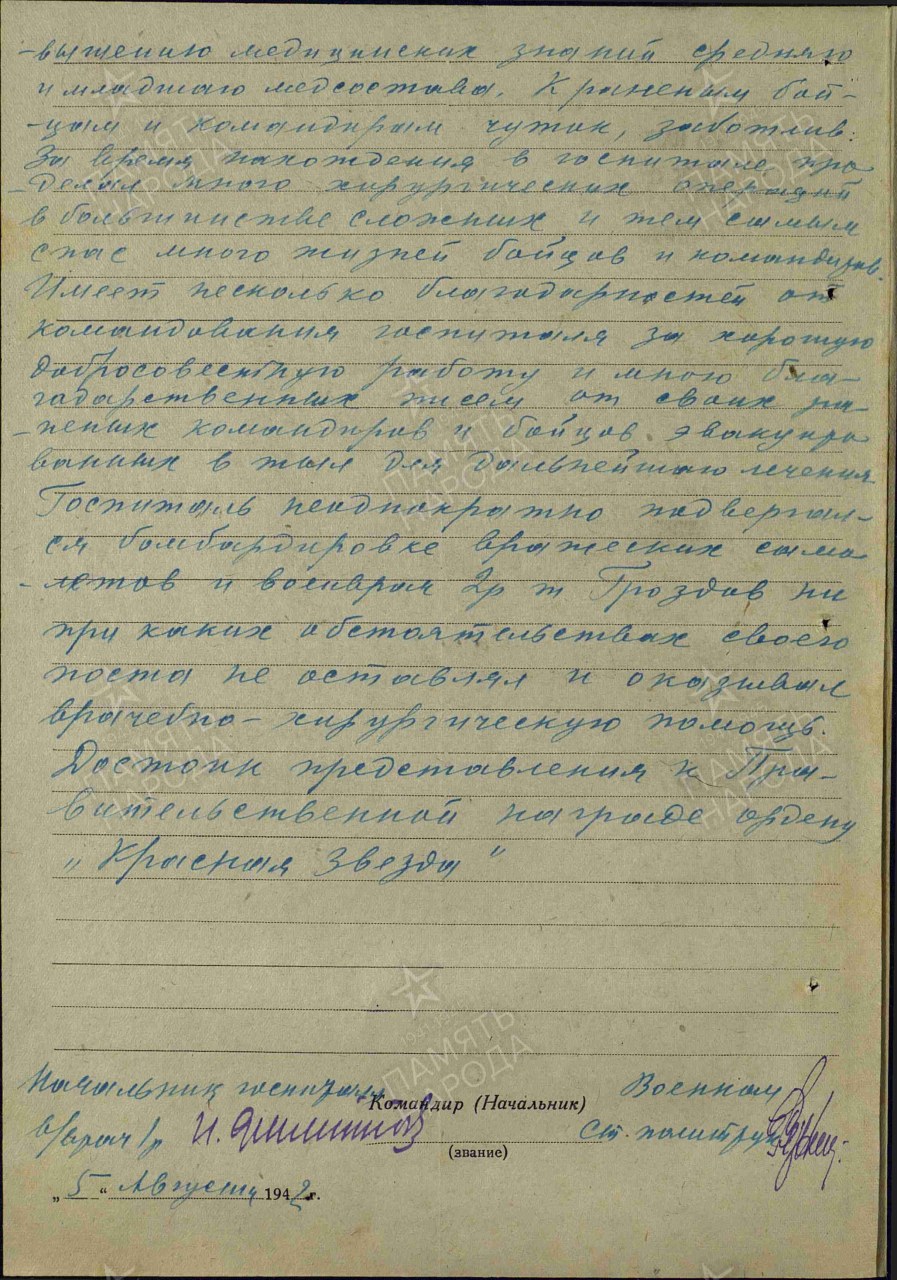 -вышению медицинских знаний среднего
и младшаго медсостава. К раненым бой-
-цам и командирам чуток, заботлив.
За время нахождения в госпитале про-
-делал много хирургических операций
в большинстве сложных и тем самым
спас много жизней бойцов и командиров.
Имеет несколько благодарностей от
командования госпиталя за хорошую
добросовестную работу и много бла-
годарственных писем от своих ра-
-неных командиров и бойцов эвакуиро
ванных в тыл для дальнейшаго лечения.
Госпиталь неоднократно подвергал-
ся бомбардировке вражеских само
-летов и военврач 2р т Гроздов ни
при каких обстоятельствах своего
поста не оставлял и оказывал
врачебно-хирургическую помощь.
Достоин представления к Пра-
вительственной награде ордену
„Красная Звезда"
Начальник госпиталя Военком
Командир (Начальник)
в/врач Ст. политрук
(звание)
„5“ Августа 1942 г.
ПАМЯТЬ НАРОДА